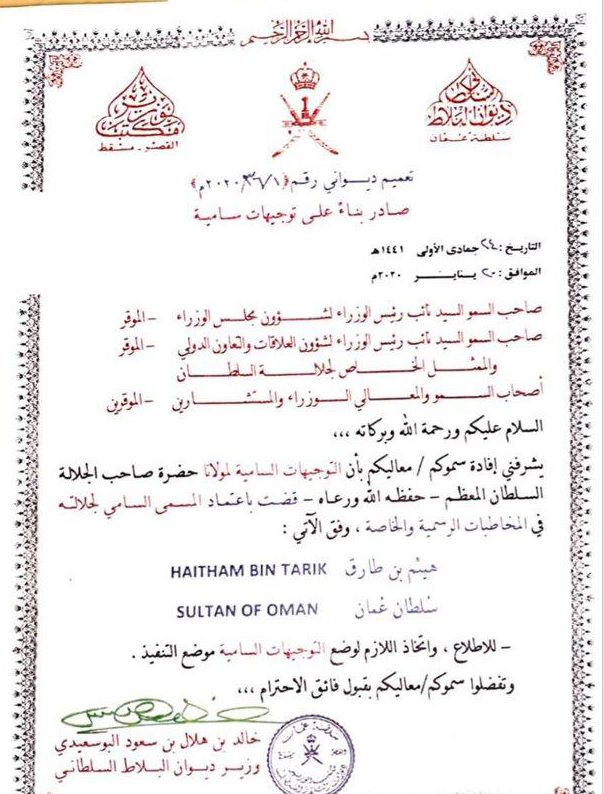 بسم الله الرحمن الرحيم
مكتب الوزير
القصر - مسقط
ديوان البلاط السلطاني
سلطنة عمان
تعميم ديواني رقم (٢٠٢٠/٣٦/١م)
صادر بناءً على توجيهات سامية
التاريخ: ٢٤ جمادى الأولى ١٤٤١هـ
الموافق: ٢٠ ينايـر ٢٠٢٠م
صاحب السمو السيد نائب رئيس الوزراء لشؤون مجلس الوزراء - الموقر
صاحب السمو السيد نائب رئيس الوزراء لشؤون العلاقات والتعاون الدولي - الموقر
والممثل الخاص لجلالة السلطان
أصحاب السمو والمعالي الوزراء والمستشارين - الموقرين
السلام عليكم ورحمة الله وبركاته ،،،
يشرفني إفادة سموكم / معاليكم بأن التوجيهات السامية لمولانا حضرة صاحب الجلالة
السلطان المعظم - حفظه الله ورعاه - قضت باعتماد المسمى السامي لجلالته
في المخاطبات الرسمية والخاصة ، وفق الآتي :
هيثم بن طارق HAITHAM BIN TARIK
سلطان عُمان SULTAN OF OMAN
- للاطلاع ، واتخاذ اللازم لوضع التوجيهات السامية موضع التنفيذ .
وتفضلوا سموكم/معاليكم بقبول فائق الاحترام ،،،
خالد بن هلال بن سعود البوسعيدي
وزير ديوان البلاط السلطاني